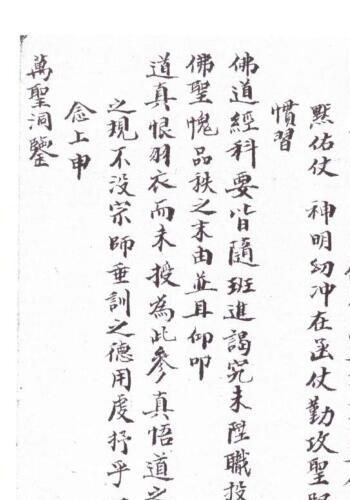 黙佑仗　神明幼冲在
仗勤攻聖
慣習
佛道經科要皆隨班進謁究未陞職投
佛聖愧品秩之末由並且仰叩
道真恨羽衣而未授為此參真悟道之
之現不没宗師垂訓之德用虔抒乎
念上申
萬聖洞鑒